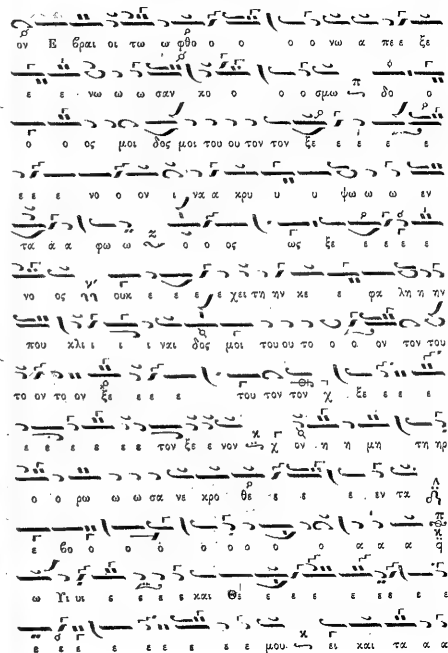 ον Ε βραι οι τω ω φθο ο ο ο ο νω α πε ε ξε
ε ε νω ω ω σαν κο ο ο ο σμω δο ο
ο ο ος μοι δος μοι του ου τον τον ξε ε ε ε ε
ε ε ε νο ο ον ι να α κρυ υ υ ψω ω ω εν
τα ά α φω ω ο ο ος ως ξε ε ε ε ε
νο ος ουκ ε ε ε ε χει τη ην κε ε φα λη η ην
που κλι ι ι ι ναι δος μοι του ου το ο ο ον τον του
το ον το ον ξε ε ε ε του τον τον ξε ε ε ε
ε ε ε ε ε ε τον ξε ε νον ον η η μη τη ηρ
ο ο ρω ω ω σα νε κρο θε ε ε ε ε εν τα
ε βο ο ο ο ο ο ο ο ο α α α
ω Υι υι ε ε ε ε και Θε ε ε ε ε ε ε ε ε ε
ε ε ε ε ε ε ε ε ε μου ει και τα α α